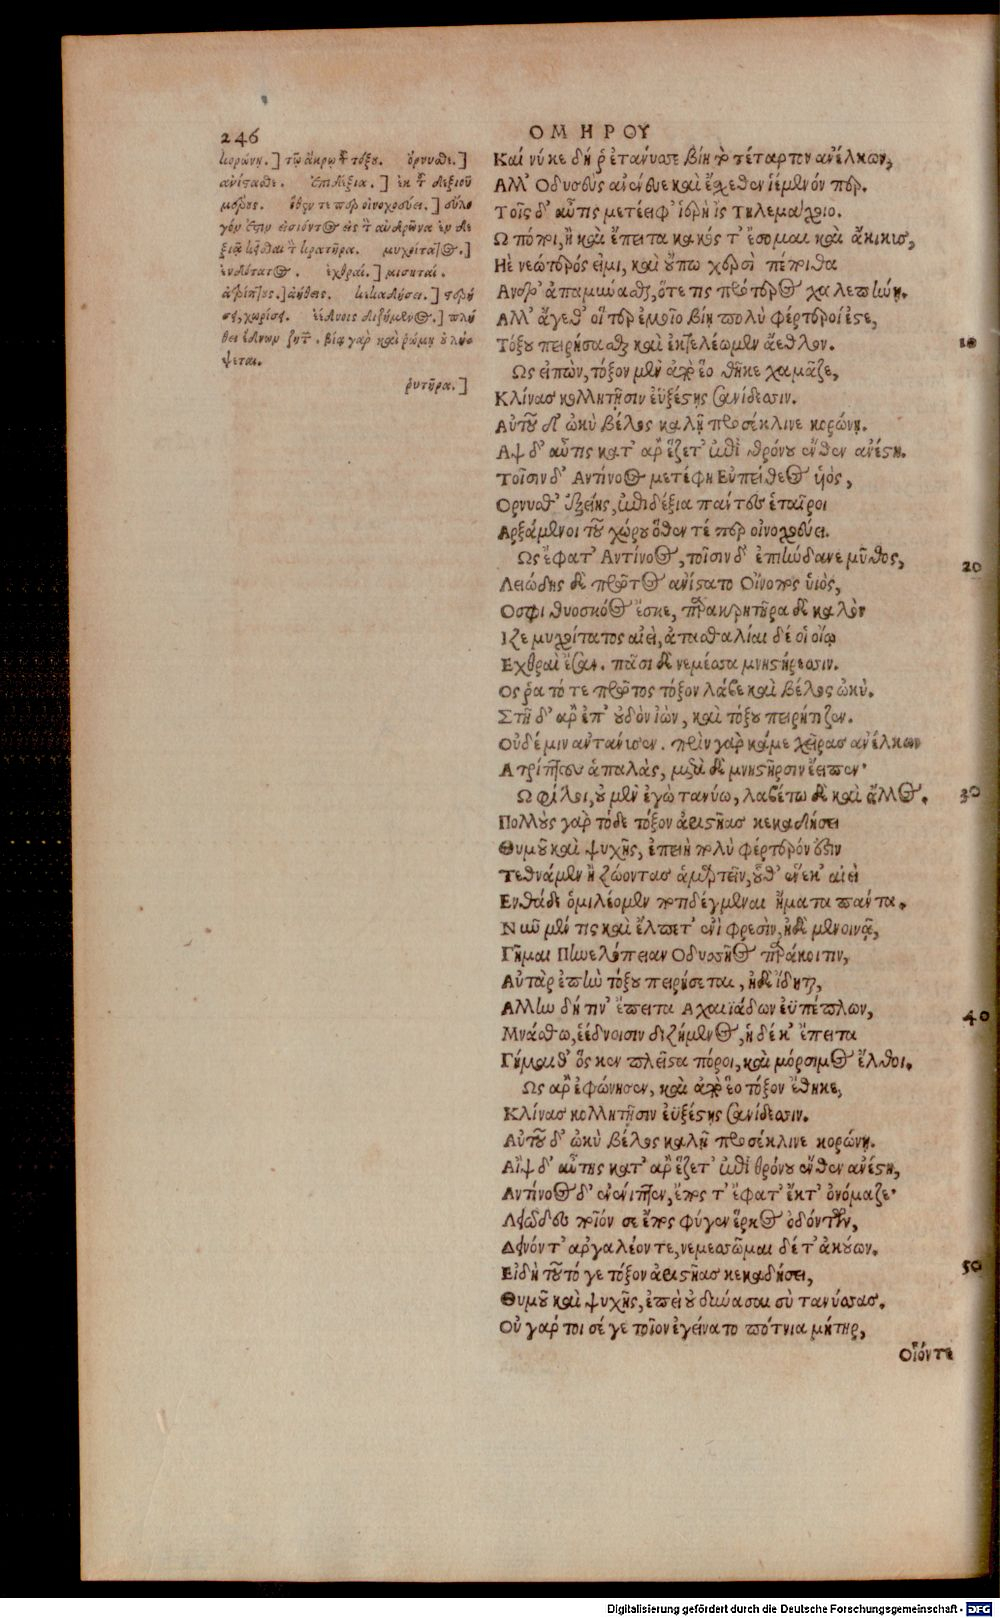 246
ΟΜΗΡΟΥ
κορώνη.] τῷ ἄκρῳ τ̃ τόξου. ὄρνυσθε.]
ἀνίστασθε. ἐπιδέξια.] ἐκ τ̃ δεξιοῦ
μέρους. ὅθεν τε περ οἰνοχοεύει.]
γὸν εἰσιόντος εἰς τ̀ ἀνδρῶνα ἐν δε
ξιᾷ κεῖσθαι τ̀ κρατῆρα. μυχοίτατος.]
ἐνδότατος. ἐχθραί.] μισηταί.
ἀτρίπτους.] ἀήθεις. κεκαδήσει.] στερή
σει, χωρίσει. ἐέδνοις διζήμενος.] πλή
θει ἕδνων ζητ. βίᾳ γὰρ καὶ ῥώμῃ οὐ λήψεται.
ῥυτῆρα.]
Καί νύ κε δή ῥ' ἐτανύσσε βίῃ τὸ τέταρτον ἀνέλκων,
Αλλ' Οδυσεὺς ἀνένευε καὶ ἔσχεθεν ἱέμενόν περ.
Τοῖς δ' αὖτις μετέειφ' ἱερὴ ἲς Τηλεμάχοιο.
Ω πόποι, ἢ καὶ ἔπειτα κακός τ' ἔσομαι καὶ ἄκικυς,
Ηὲ νεώτερός εἰμι, καὶ οὔπω χερσὶ πέποιθα
Ανδρ' ἀπαμύνασθαι, ὅτε τις πρότερος χαλεπήνῃ.
Αλλ' ἄγεθ' οἵ περ ἐμοῖο βίῃ πολὺ φέρτεροί ἐστε,
Τόξου πειρήσασθε καὶ ἐκτελέωμεν ἄεθλον.
10
Ως εἰπὼν, τόξον μὲν ἀπὸ ἕο θῆκε χαμᾶζε,
Κλίνας κολλητῇσιν ἐϋξέστης σανίδεσσιν.
Αὐτοῦ δ' ὠκὺ βέλος καλῇ προσέκλινε κορώνῃ.
Αψ δ' αὖτις κατ' ἂρ ἕζετ' ἐπὶ θρόνου ἔνθεν ἀνέστη.
Τοῖσιν δ' Αντίνοος μετέφη Εὐπείθεος υἱός,
Ορνυσθ' ἑξείης, ἐπιδέξια πάντες ἑταῖροι
Αρξάμενοι τοῦ χώρου ὅθεν τέ περ οἰνοχοεύει.
Ως ἔφατ' Αντίνοος, τοῖσιν δ' ἐπιήνδανε μῦθος,
20
Λειώδης δὲ πρῶτος ἀνίστατο Οἴνοπος υἱὸς,
Οσφι θυοσκόος ἔσκε, παρὰ κρητῆρα δὲ καλὸν
Ιζε μυχοίτατος αἰεὶ, ἀτασθαλίαι δέ οἱ οἴῳ
Εχθραὶ ἔσαν. πᾶσι δὲ νεμέσσα μνηστήρεσσιν.
Ος ῥα τό τε πρῶτος τόξον λάβε καὶ βέλος ὠκύ.
Στῆ δ' ἂρ ἐπ' οὐδὸν ἰὼν, καὶ τόξου πειρήτιζεν.
Οὐδέ μιν αντανισεν. πρὶν γὰρ κάμε χεῖρας ἀνέλκων
Ατρίπτους ἁπαλὰς, μετὰ δὲ μνηστῆρσιν ἔειπεν·
Ω φίλοι, οὐ μὲν ἐγὼ τανύω, λαβέτω δὲ καὶ ἄλλος.
30
Πολλοὺς γὰρ τόδε τόξον ἀριστῆας κεκαδήσει
Θυμοῦ καὶ ψυχῆς, ἐπειὴ πολὺ φέρτερόν ἐστιν
Τεθνάμεν ἢ ζώοντας ἁμαρτεῖν, οὗθ' ἕνεκ' αἰεὶ
Ενθάδε ὁμιλέομεν ποτιδέγμεναι ἤματα πάντα.
Νῦν μέν τις καὶ ἔλπετ' ἐνὶ φρεσὶν, ἠδὲ μενοινᾷ,
Γῆμαι Πηνελόπειαν Οδυσσῆος παράκοιτιν,
Αὐτὰρ ἐπὴν τόξου πειρήσεται, ἠδὲ ἴδηται,
Αλλην δή τιν' ἔπειτα Αχαιϊάδων ἐϋπέπλων,
40
Μνάσθω, ἐέδνοισιν διζήμενος, ἡ δέ κ' ἔπειτα
Γήμαιθ' ὅς κεν πλεῖστα πόροι, καὶ μόρσιμος ἔλθοι.
Ως ἂρ ἐφώνησεν, καὶ ἀπὸ ἕο τόξον ἔθηκε,
Κλίνας κολλητῇσιν ἐϋξέστης σανίδεσσιν.
Αὐτοῦ δ' ὠκὺ βέλος καλῇ προσέκλινε κορώνῃ.
Αἲψ δ' αὖτης κατ' ἂρ ἕζετ' ἐπὶ θρόνου ἔνθεν ἀνέστη,
Αντίνοος δ' ἐνένιπτεν, ἔπος τ' ἔφατ' ἔκτ' ὀνόμαζε·
Λειῶδες ποῖόν σε ἔπος φύγεν ἕρκος ὀδόντων,
Δεινόν τ' ἀργαλέον τε, νεμεσσῶμαι δέ τ' ἀκούων.
Εἰ δὴ τοῦτό γε τόξον ἀριστῆας κεκαδήσει,
50
Θυμοῦ καὶ ψυχῆς, ἐπεὶ οὐ δύνασαι σὺ τανύσσας.
Οὐ γάρ τοι σέ γε τοῖον ἐγείνατο πότνια μήτηρ,
Οἷόν τε
Digitalisierung gefördert durch die Deutsche Forschungsgemeinschaft - DFG